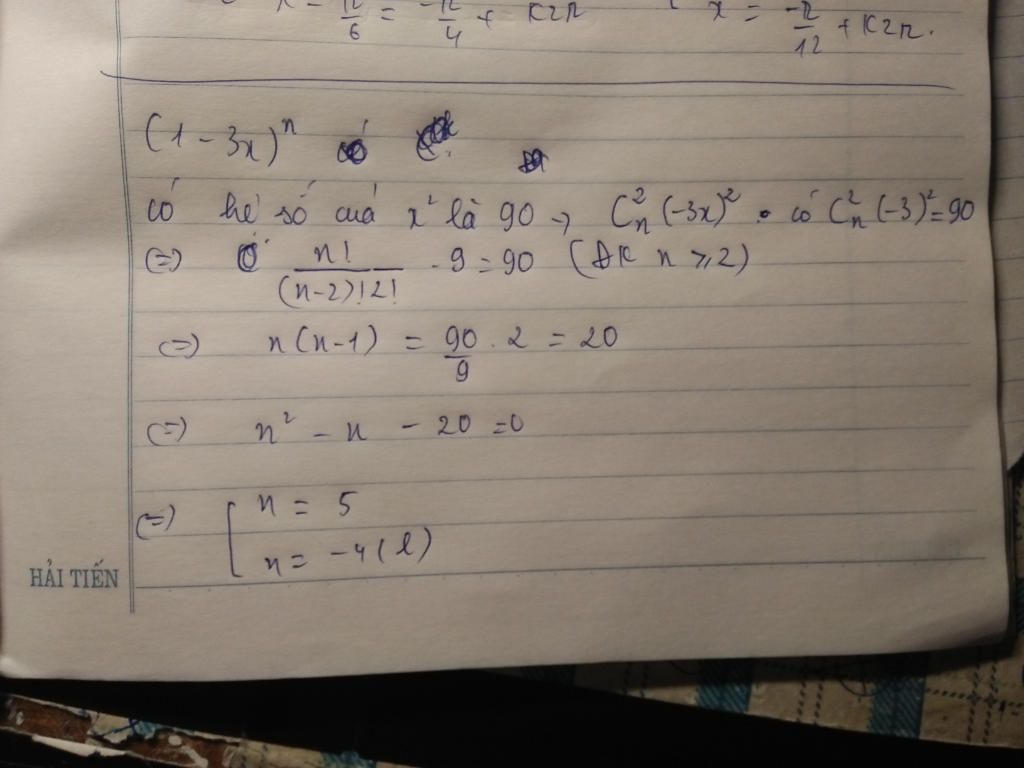 x - π/6 = -π/4 + K2π x = -π/12 + K2π.
(1 - 3x)ⁿ có
có hệ số của x² là 90 → Cₙ²(-3x)² . có Cₙ²(-3)² = 90
(=) n!/(n-2)!2! . 9 = 90 (ĐK n ≥ 2)
(=) n(n-1) = 90/9 . 2 = 20
(=) n² - n - 20 = 0
(=) [ n = 5
n = -4 (l)
HẢI TIẾN